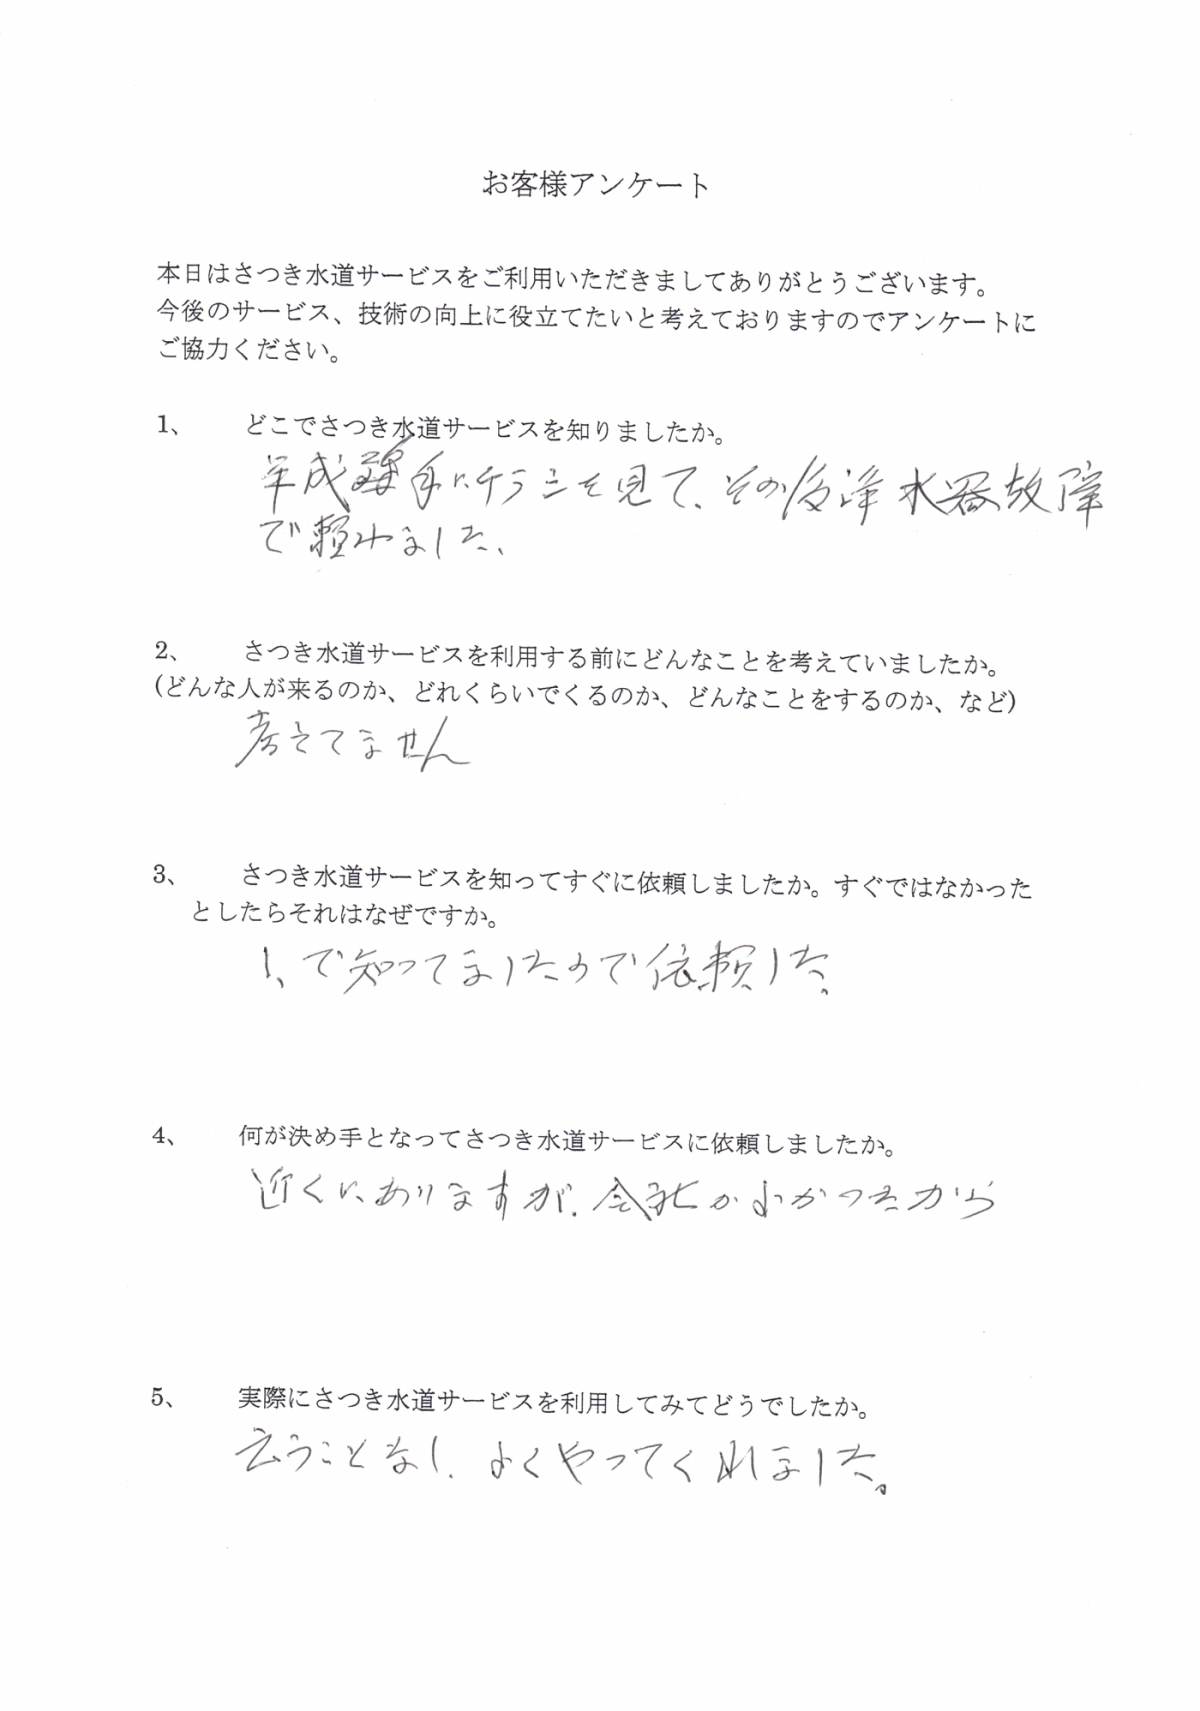 お客様アンケート
本日はさつき水道サービスをご利用いただきましてありがとうございます。
今後のサービス、技術の向上に役立てたいと考えておりますのでアンケートに
ご協力ください。
1、 どこでさつき水道サービスを知りましたか。
平成 年にチラシを見て、その後浄水器故障
で頼みました、
2、 さつき水道サービスを利用する前にどんなことを考えていましたか。
(どんな人が来るのか、どれくらいでくるのか、どんなことをするのか、など)
考えてません
3、 さつき水道サービスを知ってすぐに依頼しましたか。すぐではなかった
としたらそれはなぜですか。
1、で知ってましたので依頼した。
4、 何が決め手となってさつき水道サービスに依頼しましたか。
近くにありますが、会社がよかったから
5、 実際にさつき水道サービスを利用してみてどうでしたか。
云うことなし、よくやってくれました。